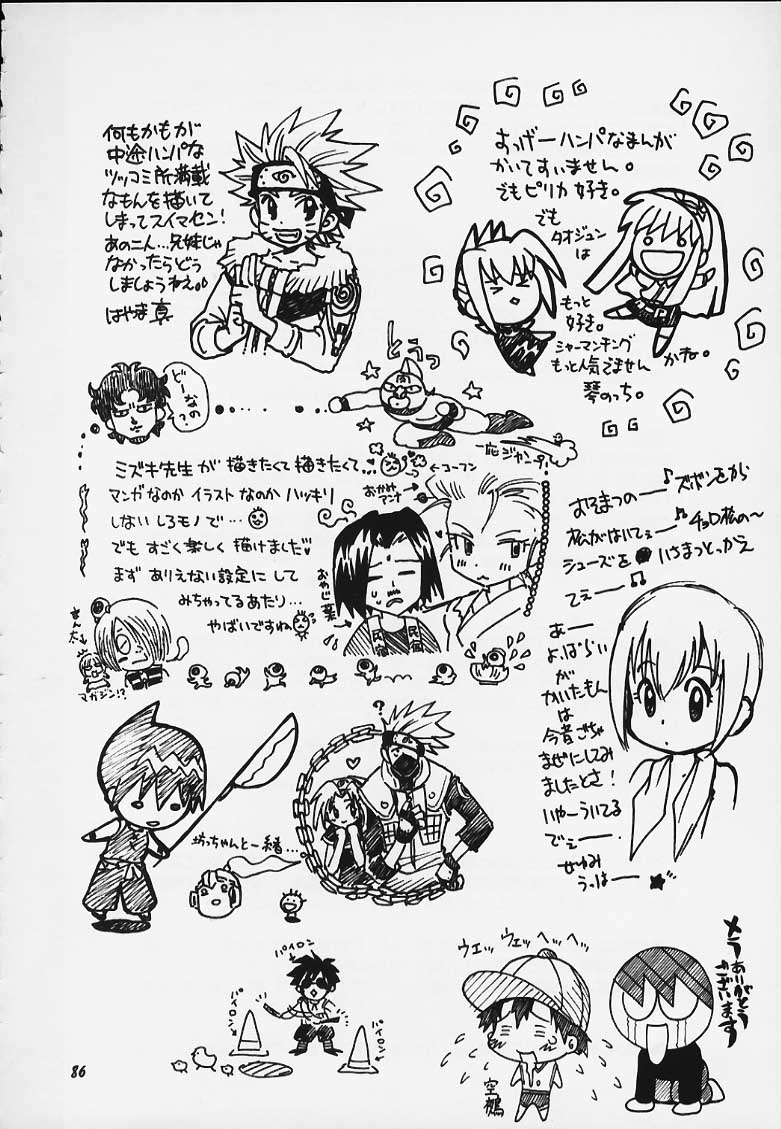 何もかもが
中途ハンパな
ツッコミ所満載
なもんを描いて
しまってスイマセン!
あの二人…兄妹じゃ
なかったらどう
しましょうねぇ。
はやま真
すっげーハンパなまんが
かいてすいません。
でもピリカ好き。
でも
タオジュン
は
もっと
好き。
シャーマンキング
もっと人気でません
かね。
琴のっち。
どーなの?
とうっ
一応ジャンプ。
ミズキ先生が 描きたくて描きたくて…
←コーフン
マンガなのか イラストなのか ハッキリ
しない しろモノで…
でも すごく楽しく 描けました♥
まず ありえない設定にして
みちゃってるあたり…
やばいですね
おかみ
アンナ
おやじ葉
民宿
民宿
きん太
マガジン!?
おそまつのー♪ ズボンをから
松がはいてぇー♬ チョロ松の〜
シューズを
いちまつとっかえ
てぇー♫
あー
よっぱらい
が
かいたもん
は
今昔ごちゃ
まぜにしてみ
ましたとさ!
いゃーういてる
でぇー.
せゆみ
うっはー★
?
坊っちゃんと一緒…
パイロン
パイロン
パイロン
ウェッ ウェッ ヘッ ヘッ
空鵺
メラ
ありがとう
ございます
86